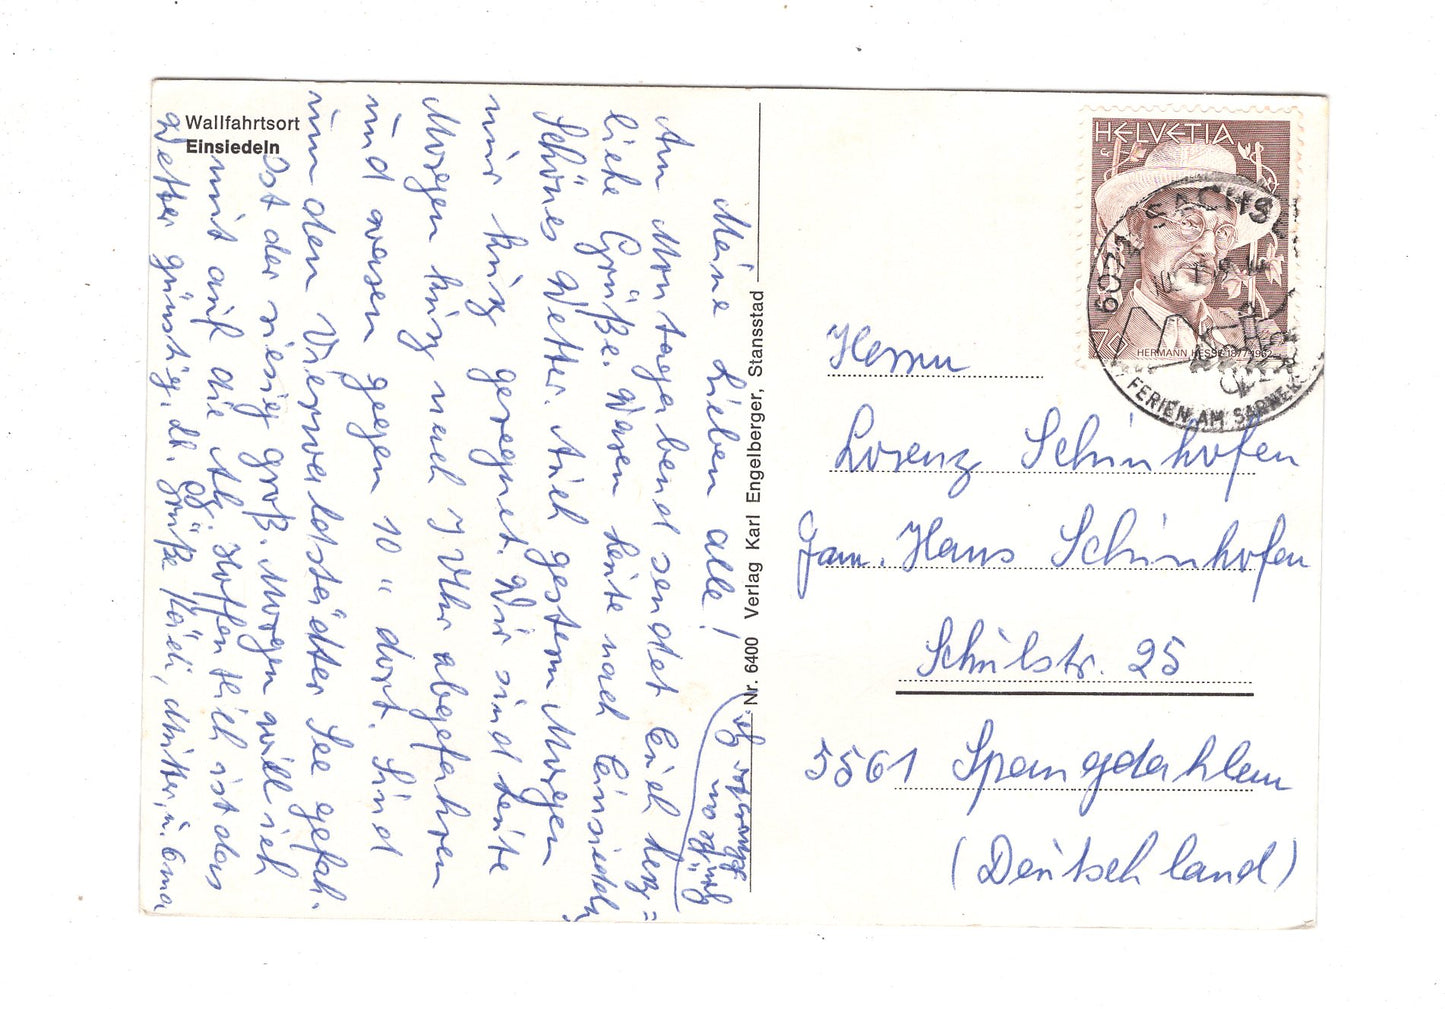 Wallfahrtsort
Einsiedeln
Meine Lieben alle!
Am Montagabend sendet Euch herz=
liche Grüße. Waren heute nach Einsiedeln
Schönes Wetter. Auch gestern Morgen
nur kurz geregnet. Wir sind heute
Morgen kurz nach 7 Uhr abgefahren
und waren gegen 10 " dort. Sind
um den Vierwaldstädter See gefah.
Ost der riesig groß. Morgen will ich
mit auf die Alp. Hoffentlich ist das
Wetter günstig. Lb. Grüße Kädi, Mutter, u. Oma
Nr. 6400 Verlag Karl Engelberger, Stansstad
HELVETIA
70
HERMANN HESSE 1877-1962
6072 SACHSELN
FERIEN AM SARNER
Herrn
Lorenz Schinhofen
Fam. Hans Schinhofen
Schulstr. 25
5561 Spangdahlem
(Deutschland)